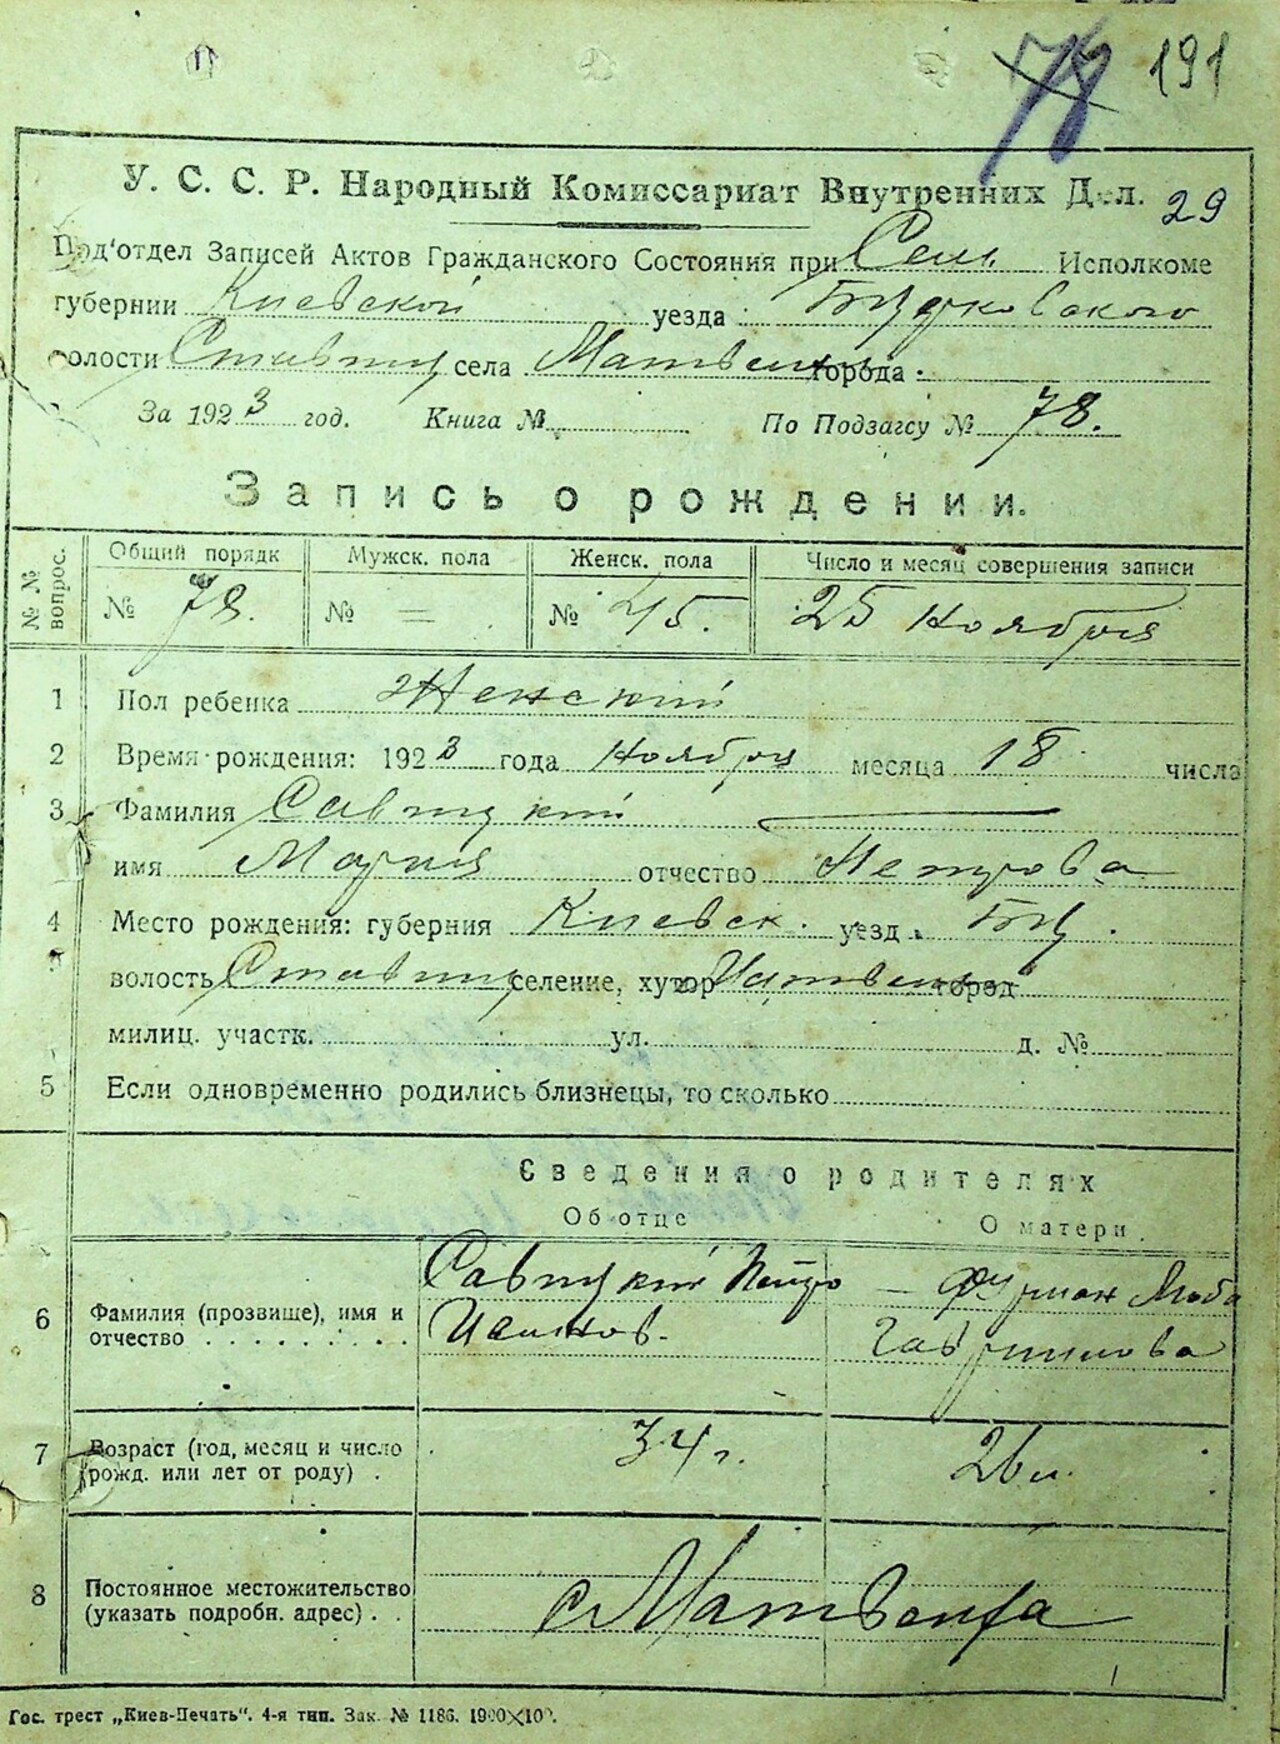 78 191
У. С. С. Р. Народный Комиссариат Внутренних Дел. 29
Под'отдел Записей Актов Гражданского Состояния при Сель. Исполкоме
губернии Киевской уезда Б Церковского
волости Ставищ села Матвеихи города
За 1923 год. Книга № По Подзагсу № 78.
Запись о рождении.
№ № вопрос. Общий порядк Мужск. пола Женск. пола Число и месяц совершения записи
№ 78. № = № 45. 25 Ноября
1 Пол ребенка Женский
2 Время рождения: 1923 года Ноября месяца 18 числа
3 Фамилия Савицкий
имя Мария отчество Петрова
4 Место рождения: губерния Киевск. уезд БЦ.
волость Ставищ селение, хутор город
милиц. участк. ул. д. №
5 Если одновременно родились близнецы, то сколько
Сведения о родителях
Об отце О матери
Савицкий Петро — Фурман Люба
6 Фамилия (прозвище), имя и
отчество Гаврилова
7 Возраст (год, месяц и число 34 г. 26 л.
рожд. или лет от роду)
8 Постоянное местожительство
(указать подробн. адрес) с Матвеиха
Гос. трест „Киев-Печать". 4-я тип. Зак. № 1186.